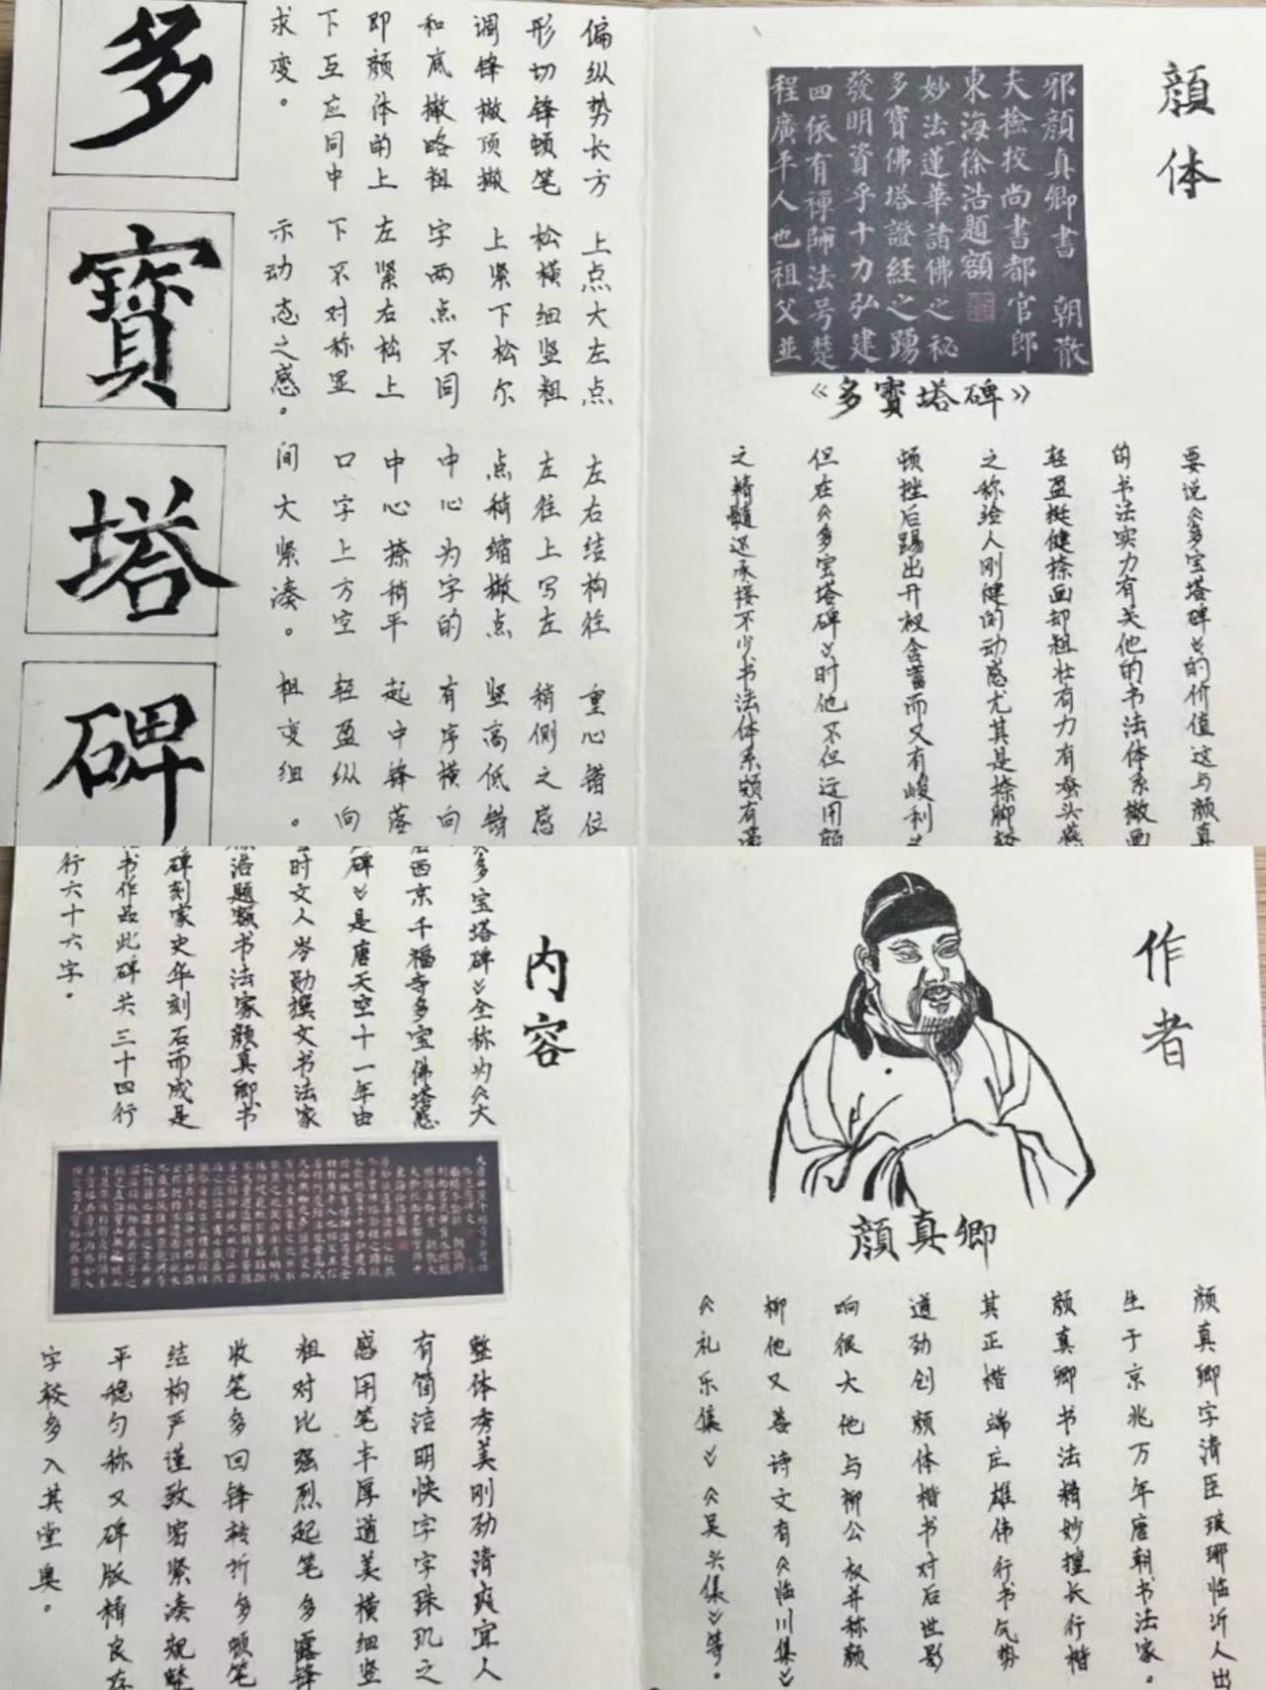 顔体
邪顔真卿書 朝散
夫撿挍尚書都官郎
東海徐浩題額
妙法蓮華諸佛之秘
多寶佛塔證經之踴
發明資乎十力弘建
四依有禪師法号楚
程廣平人也祖父並
《多寳塔碑》
要说《多宝塔碑》的价值这与颜真
的书法实力有关他的书法体系撇画
轻盈挺健捺画却粗壮有力有蚕头燕
之称给人刚健的动感尤其是捺脚轻
顿挫后踢出开杈含蓄而又有峻利
但在《多宝塔碑》时他不但运用颜
之精髓还承接不少书法体系颇有
多
偏纵势长方
形切锋顿笔
调锋撇顶撇
和底撇略粗
即颜体的上
下互应同中
求变。
寶
上点大左点
松横细竖粗
上紧下松尔
字两点不同
左紧右松上
下不对称显
示动态之感。
塔
左右结构往
左往上写左
点稍缩撇点
中心为字的
中心捺稍平
口字上方空
间大紧凑。
碑
重心错位
稍侧之感
竖高低错
有序横向
起中锋落
轻盈纵向
粗变细。
作者
顔真卿
颜真卿字清臣琅琊临沂人出
生于京兆万年唐朝书法家。
颜真卿书法精妙擅长行楷
其正楷端庄雄伟行书气势
遒劲创颜体楷书对后世影
响很大他与柳公权并称颜
柳他又善诗文有《临川集》
《礼乐集》《吴兴集》等。
内容
《多宝塔碑》全称为《大
唐西京千福寺多宝佛塔感
碑》是唐天宝十一年由
时文人岑勋撰文书法家
徐浩题额书法家颜真卿书
碑刻家史华刻石而成是
书作品此碑共三十四行
行六十六字。
整体秀美刚劲清爽宜人
有简洁明快字字珠玑之
感用笔丰厚遒美横细竖
粗对比强烈起笔多露锋
收笔多回锋转折多顿笔
结构严谨致密紧凑规整
平稳匀称又碑版精良存
字较多入其堂奥。